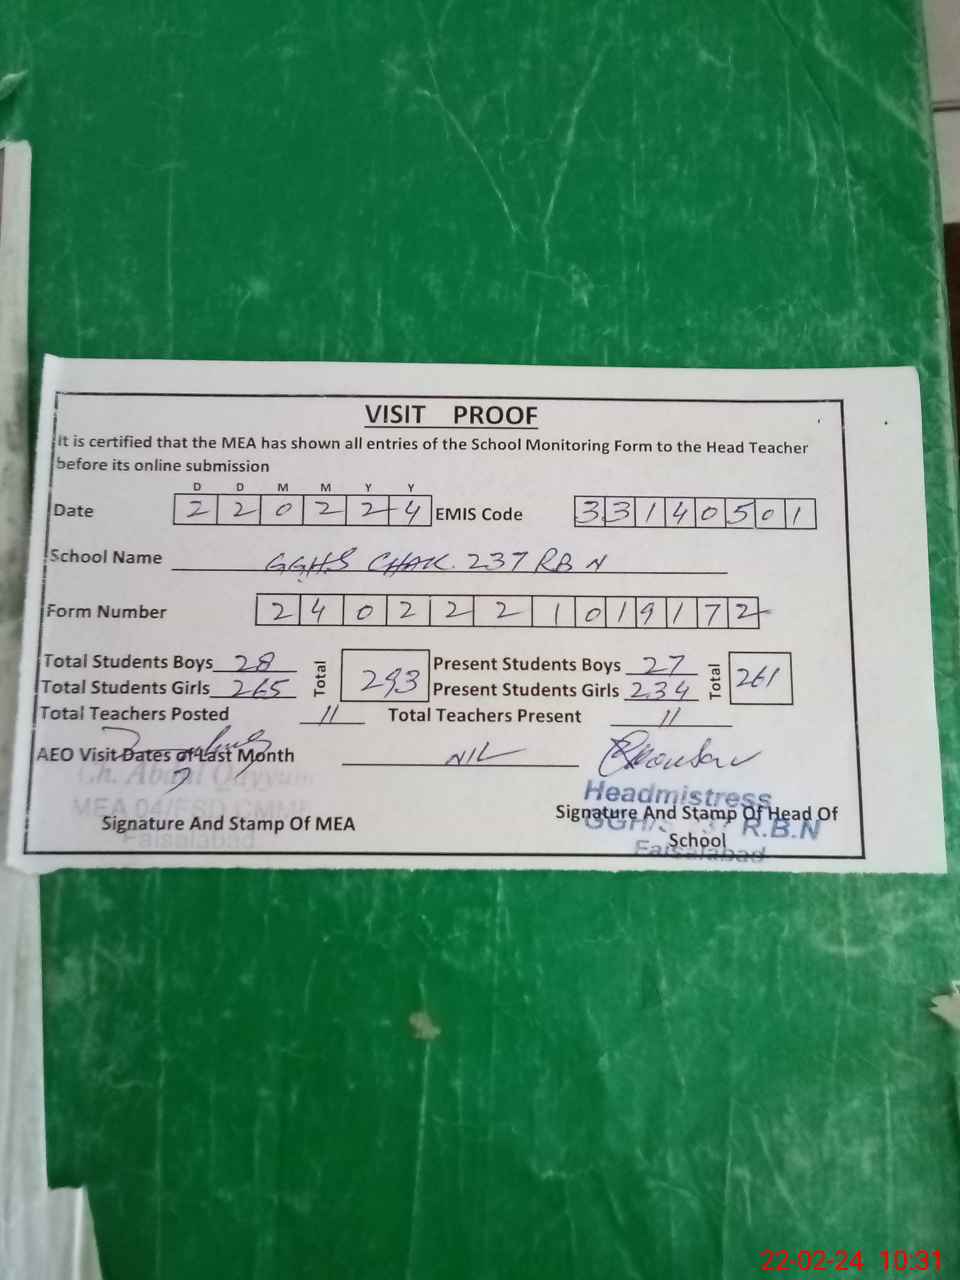 VISIT PROOF
It is certified that the MEA has shown all entries of the School Monitoring Form to the Head Teacher
before its online submission
D D M M Y Y
Date 2 2 0 2 2 4 EMIS Code 3 3 1 4 0 5 0 1
School Name GGHS CHAK. 237 RB N
Form Number 2 4 0 2 2 2 1 0 1 9 1 7 2
Total Students Boys 28 Total 293 Present Students Boys 27 Total 261
Total Students Girls 265 Present Students Girls 234
Total Teachers Posted 11 Total Teachers Present 11
AEO Visit Dates of Last Month NIL
Ch. Abdul Qayyum
MEA 04/FSD CMMF
Faisalabad
Signature And Stamp Of MEA
Headmistress
GGH/S 237 R.B.N
Faisalabad
Signature And Stamp Of Head Of
School
22-02-24 10:31